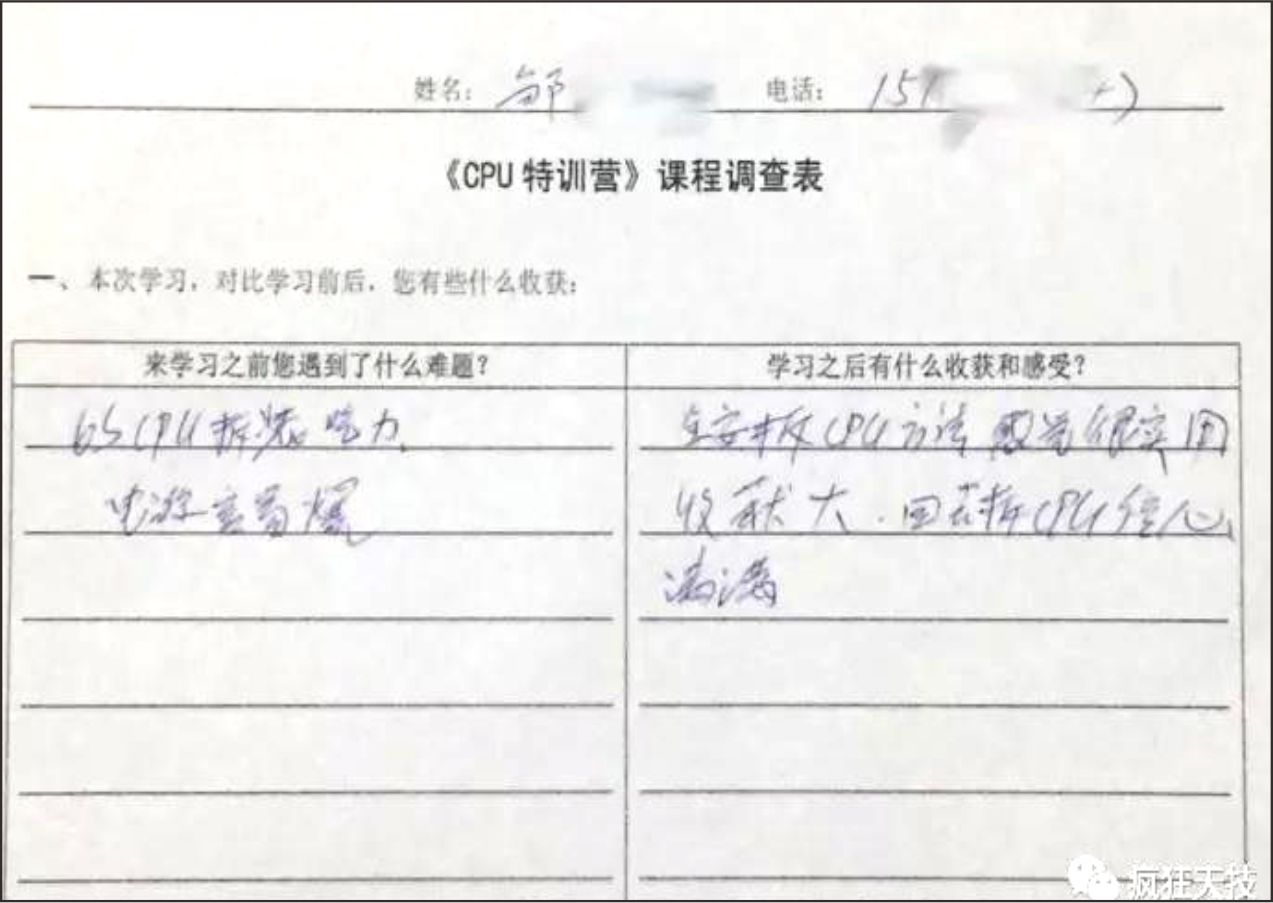 姓名: 邹 电话: 151
《CPU 特训营》课程调查表
一、本次学习，对比学习前后，您有些什么收获:
来学习之前您遇到了什么难题?
6S CPU拆装吃力
学习之后有什么收获和感受?
拆CPU方法 感觉很实用
收获大.回去拆CPU信心
满满
疯狂天技